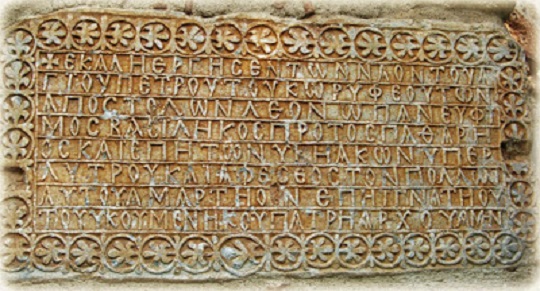 ✝ΕΚΑΛΗΕΡΓΗϹΕΝΤΩΝΝΑΟΝΤΟΥΑ
ΓΙΟΥΠΕΤΡΟΥΤΟΥΚΩΡΥΦΕΟΥΤΩΝ
ΑΠΟϹΤΟΛΩΝΛΕΩΝΩΠΑΝΕΥΦΙ
ΜΟϹΒΑϹΙΛΗΚΟϹΠΡΟΤΟϹΠΑΘΑΡΗ
ΟϹΚΑΙΕΠΗΤΩΝΥΚΗΑΚΩΝΥΠΕΡ
ΛΥΤΡΟΥΚΑΙΑΦΕϹΕΟϹΤΟΝΠΟΛΛΩΝ
ΑΥΤΟΥΑΜΑΡΤΗΟΝΕΠΗΙΓΝΑΤΗΟΥ
ΤΟΥΥΚΟΥΜΕΝΗΚΟΥΠΑΤΡΗΑΡΧΟΥΑΜΗΝ